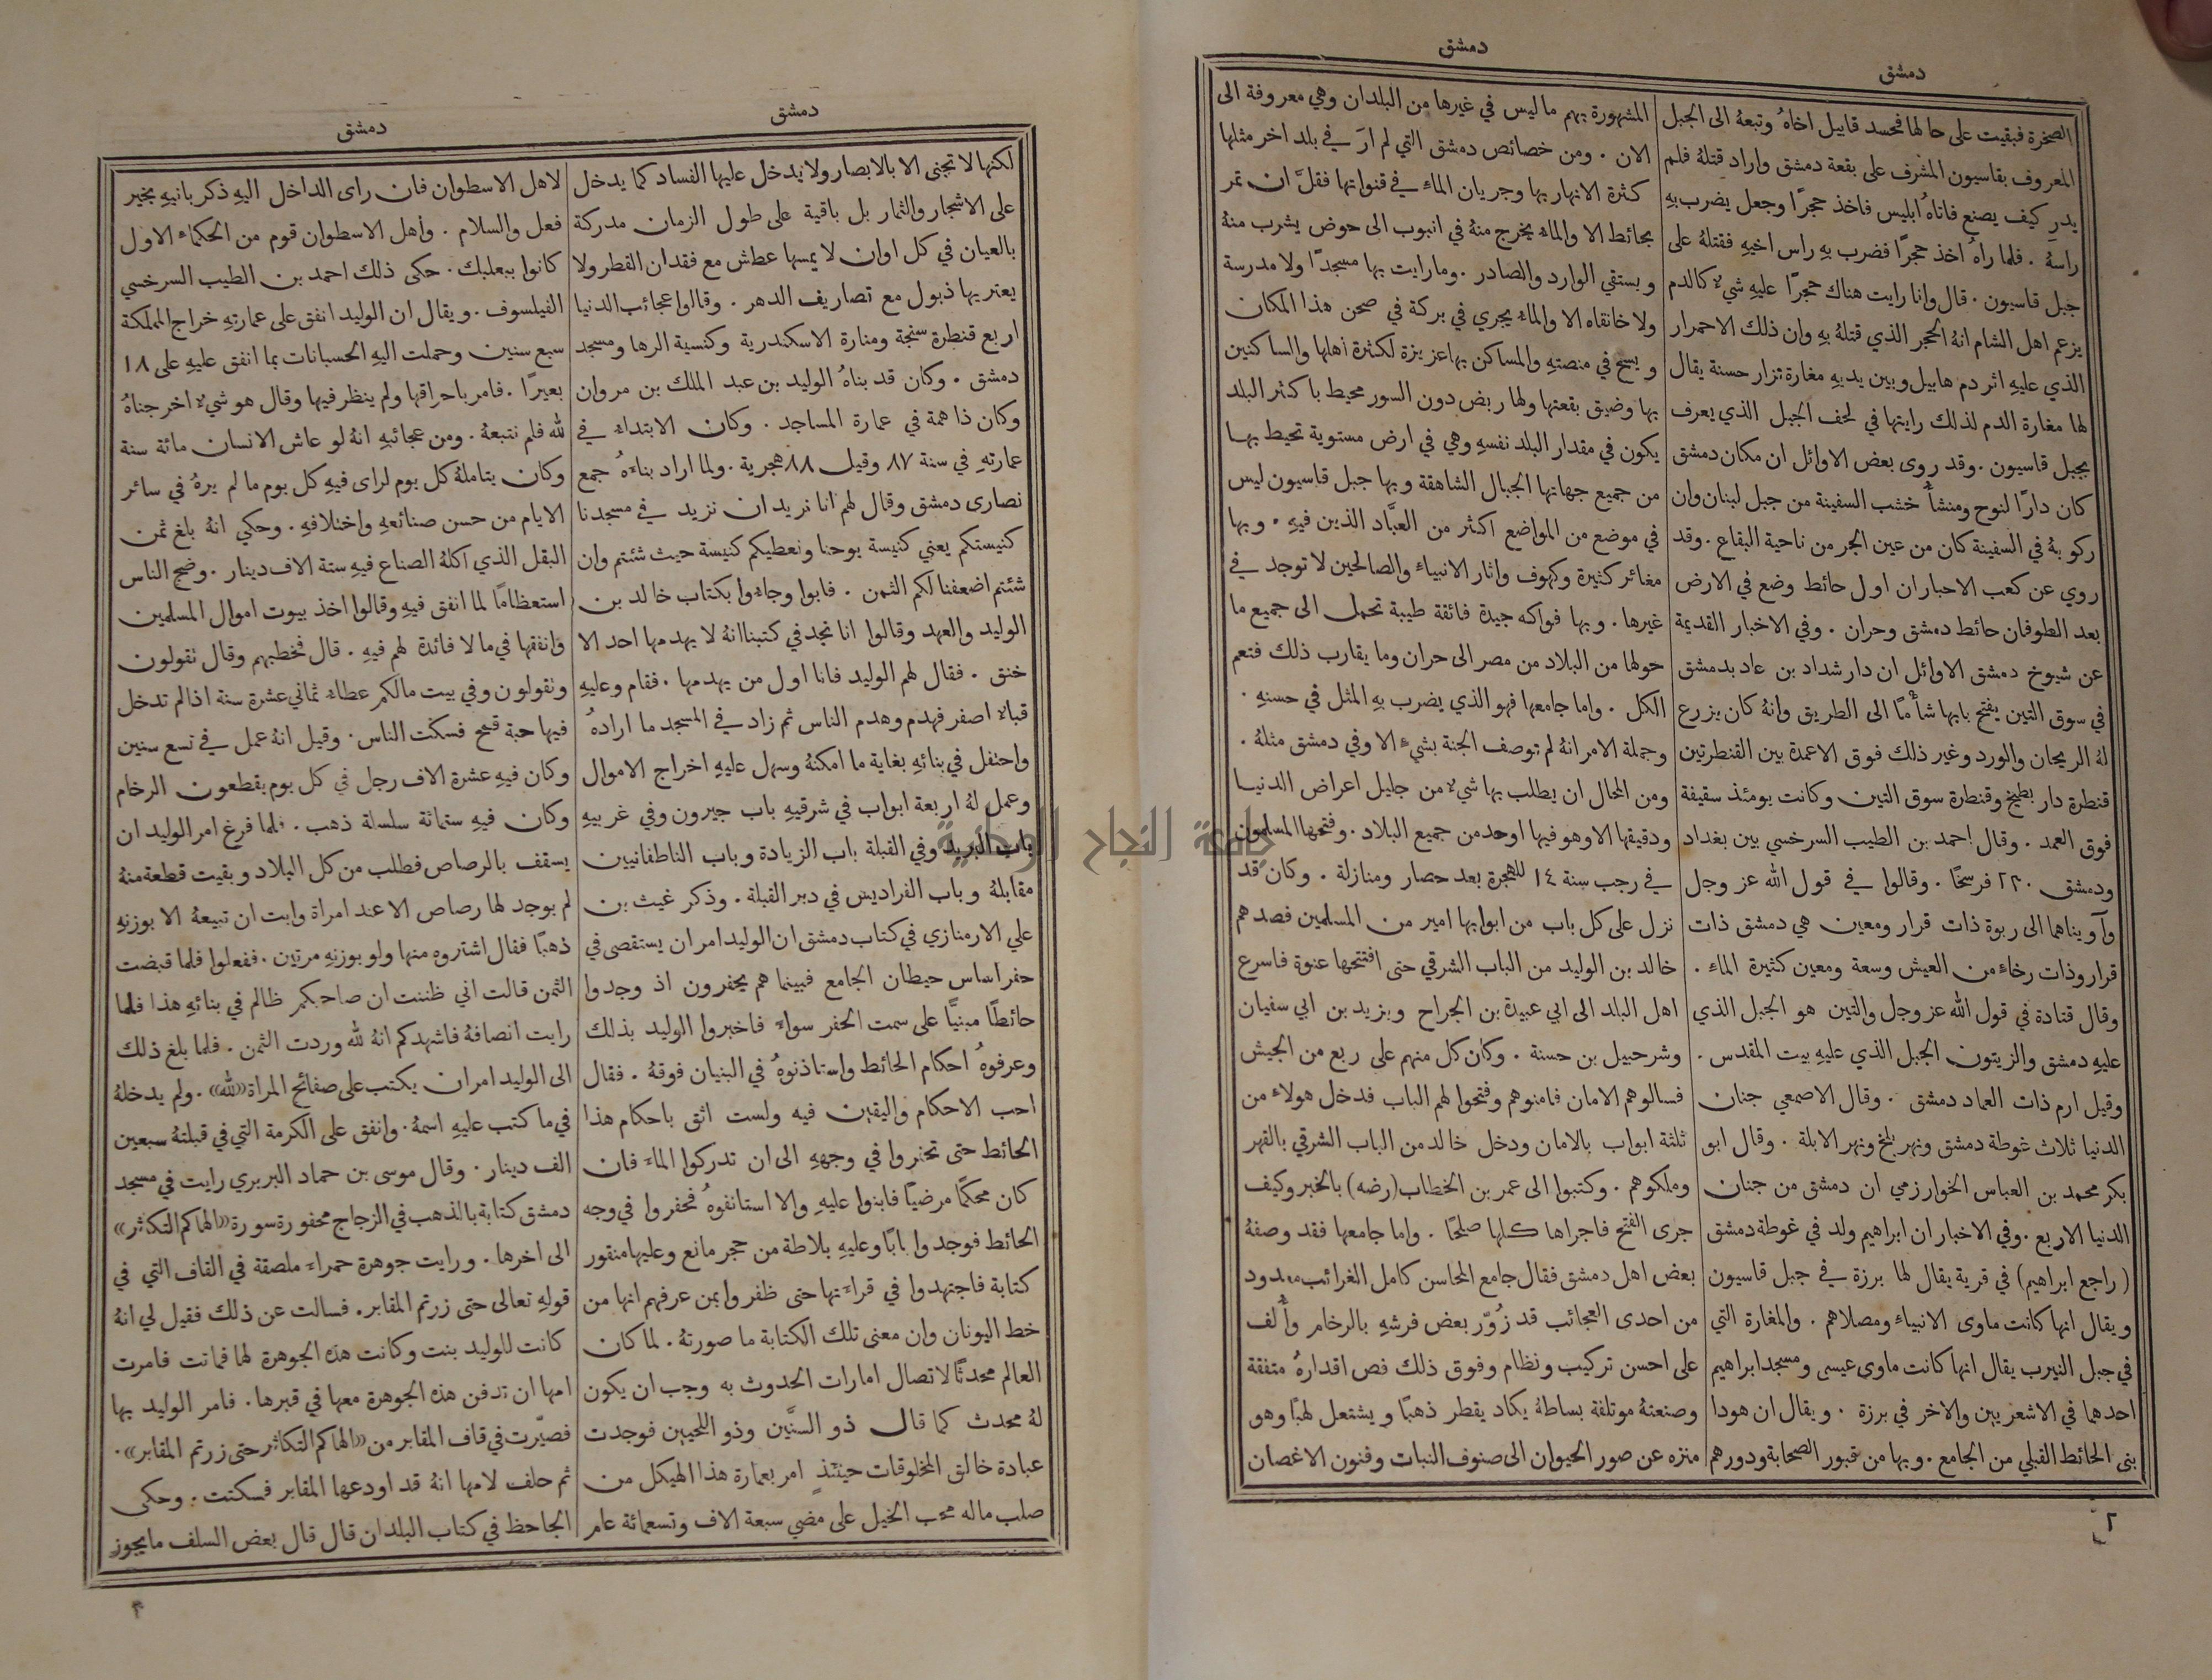 دمشق
دمشق
الصخرة فبقيت على حالها فحسد قابيل اخاهُ وتبعهُ الى الجبل
المعروف بقاسيون المشرف على بقعة دمشق واراد قتلهُ فلم
يدرِ كيف يصنع فاتاهُ ابليس فاخذ حجرًا وجعل يضرب بهِ
راسهُ . فلما راهُ اخذ حجرًا فضرب بهِ راس اخيهِ فقتلهُ على
جبل قاسيون . قال وانا رايت هناك حجرًا عليهِ شيء كالدم
يزعم اهل الشام انهُ الحجر الذي قتلهُ بهِ وان ذلك الاحمرار
الذي عليهِ اثر دم هابيل وبين يديهِ مغارة تزار حسنة يقال
لها مغارة الدم لذلك رايتها في لحف الجبل الذي يعرف
بجبل قاسيون . وقد روى بعض الاوائل ان مكان دمشق
كان دارًا لنوح ومنشأُ خشب السفينة من جبل لبنان وان
ركوبهُ في السفينة كان من عين الجر من ناحية البقاع . وقد
روي عن كعب الاحبار ان اول حائط وضع في الارض
بعد الطوفان حائط دمشق وحران . وفي الاخبار القديمة
عن شيوخ دمشق الاوائل ان دار شداد بن عاد بدمشق
في سوق التين يفتح بابها شأمًا الى الطريق وانهُ كان يزرع
لهُ الريحان والورد وغير ذلك فوق الاعمدة بين القنطرتين
قنطرة دار بطيخ وقنطرة سوق التين وكانت يومئذ سقيفة
فوق العمد . وقال احمد بن الطيب السرخسي بين بغداد
ودمشق ٢٣٠ فرسخًا . وقالوا في قول الله عز وجل
وآويناهما الى ربوة ذات قرار ومعين هي دمشق ذات
قرار وذات رخاء من العيش وسعة ومعين كثيرة الماء .
وقال قتادة في قول الله عز وجل والتين هو الجبل الذي
عليهِ دمشق والزيتون الجبل الذي عليهِ بيت المقدس .
وقيل ارم ذات العماد دمشق . وقال الاصمعي جنان
الدنيا ثلاث غوطة دمشق ونهر بلخ ونهر الابلة . وقال ابو
بكر محمد بن العباس الخوارزمي ان دمشق من جنان
الدنيا الاربع . وفي الاخبار ان ابراهيم ولد في غوطة دمشق
( راجع ابراهيم ) في قرية يقال لها برزة في جبل قاسيون
ويقال انها كانت ماوى الانبياء ومصلاهم . والمغارة التي
في جبل النيرب يقال انها كانت ماوى عيسى ومسجد ابراهيم
احدهما في الاشعريين والاخر في برزة . ويقال ان هودا
بنى الحائط القبلي من الجامع . وبها من قبور الصحابة ودورهم
المشهورة بهم ما ليس في غيرها من البلدان وهي معروفة الى
الان . ومن خصائص دمشق التي لم ارَ في بلد اخر مثلها
كثرة الانهار بها وجريان الماء في قنواتها فقلَّ ان تمر
بحائط الا والماء يخرج منهُ في انبوب الى حوض يشرب منهُ
ويستقي الوارد والصادر . وما رايت بها مسجدًا ولا مدرسة
ولا خانقاه الا والماء يجري في بركة في صحن هذا المكان
ويسح في منصتهِ والمساكن بها عزيزة لكثرة اهلها والساكنين
بها وضيق بقعتها ولها ربض دون السور محيط باكثر البلد
يكون في مقدار البلد نفسهِ وهي في ارض مستوية تحيط بها
من جميع جهاتها الجبال الشاهقة وبها جبل قاسيون ليس
في موضع من المواضع اكثر من العبَّاد الذين فيهِ . وبها
مغائر كثيرة وكهوف واثار الانبياء والصالحين لا توجد في
غيرها . وبها فواكه جيدة فائقة طيبة تحمل الى جميع ما
حولها من البلاد من مصر الى حران وما يقارب ذلك فتعم
الكل . واما جامعها فهو الذي يضرب بهِ المثل في حسنهِ .
وجملة الامر انهُ لم توصف الجنة بشيء الا وفي دمشق مثلهُ .
ومن المحال ان يطلب بها شيء من جليل اعراض الدنيا
ودقيقها الا وهو فيها اوحد من جميع البلاد . وفتحها المسلمون
في رجب سنة ١٤ للهجرة بعد حصار ومنازلة . وكان قد
نزل على كل باب من ابوابها امير من المسلمين فصدهم
خالد بن الوليد من الباب الشرقي حتى افتتحها عنوة فاسرع
اهل البلد الى ابي عبيدة بن الجراح ويزيد بن ابي سفيان
وشرحبيل بن حسنة . وكان كل منهم على ربع من الجيش
فسالوهم الامان فامنوهم وفتحوا لهم الباب فدخل هولاء من
ثلثة ابواب بالامان ودخل خالد من الباب الشرقي بالقهر
وملكوهم . وكتبوا الى عمر بن الخطاب (رضه) بالخبر وكيف
جرى الفتح فاجراها كلها صلحًا . واما جامعها فقد وصفهُ
بعض اهل دمشق فقال جامع المحاسن كامل الغرائب معدود
من احدى العجائب قد زُوّر بعض فرشهِ بالرخام وأُلف
على احسن تركيب ونظام وفوق ذلك فص اقدارهُ متفقة
وصنعتهُ موتلفة بساطهُ يكاد يقطر ذهبًا ويشتعل لهبًا وهو
منزه عن صور الحيوان الى صنوف النبات وفنون الاغصان
٢
دمشق
دمشق
لكنها لا تجنى الا بالابصار ولا يدخل عليها الفساد كما يدخل
على الاشجار والثمار بل باقية على طول الزمان مدركة
بالعيان في كل اوان لا يمسها عطش مع فقدان القطر ولا
يعتريها ذبول مع تصاريف الدهر . وقالوا عجائب الدنيا
اربع قنطرة سنجة ومنارة الاسكندرية وكنسية الرها ومسجد
دمشق . وكان قد بناهُ الوليد بن عبد الملك بن مروان
وكان ذا همة في عمارة المساجد . وكان الابتداء في
عمارتهِ في سنة ٨٧ وقيل ٨٨ هجرية . ولما اراد بناءهُ جمع
نصارى دمشق وقال لهم انا نريد ان نزيد في مسجدنا
كنيستكم يعني كنيسة يوحنا ونعطيكم كنيسة حيث شئتم وان
شئتم اضعفنا لكم الثمن . فابوا وجاءوا بكتاب خالد بن
الوليد والعهد وقالوا انا نجد في كتبنا انهُ لا يهدمها احد الا
خنق . فقال لهم الوليد فانا اول من يهدمها . فقام وعليهِ
قباء اصفر فهدم وهدم الناس ثم زاد في المسجد ما ارادهُ
واحتفل في بنائهِ بغاية ما امكنهُ وسهل عليهِ اخراج الاموال
وعمل لهُ اربعة ابواب في شرقيهِ باب جيرون وفي غربيهِ
باب البريد وفي القبلة باب الزيادة وباب الناطفانيين
مقابلهُ وباب الفراديس في دبر القبلة . وذكر غيث بن
علي الارمنازي في كتاب دمشق ان الوليد امر ان يستقصى في
حفر اساس حيطان الجامع فبينما هم يحفرون اذ وجدوا
حائطًا مبنيًا على سمت الحفر سواء فاخبروا الوليد بذلك
وعرفوهُ احكام الحائط واستاذنوهُ في البنيان فوقهُ . فقال
احب الاحكام واليقين فيه ولست اثق باحكام هذا
الحائط حتى تحفروا في وجههِ الى ان تدركوا الماء فان
كان محكمًا مرضيًا فابنوا عليهِ والا استانفوهُ فحفروا في وجه
الحائط فوجدوا بابًا وعليهِ بلاطة من حجر مانع وعليها منقور
كتابة فاجتهدوا في قراءتها حتى ظفروا بمن عرفهم انها من
خط اليونان وان معنى تلك الكتابة ما صورتهُ . لما كان
العالم محدثًا لاتصال امارات الحدوث به وجب ان يكون
لهُ محدث كما قال ذو السنَّين وذو اللحيين فوجدت
عبادة خالق المخلوقات حينئذٍ امر بعمارة هذا الهيكل من
صلب ماله محب الخيل على مضي سبعة الاف وتسعمائة عام
لاهل الاسطوان فان راى الداخل اليهِ ذكر بانيهِ بخير
فعل والسلام . وأهل الاسطوان قوم من الحكماء الاول
كانوا ببعلبك . حكى ذلك احمد بن الطيب السرخسي
الفيلسوف . ويقال ان الوليد انفق على عمارتهِ خراج المملكة
سبع سنين وحملت اليهِ الحسبانات بما انفق عليهِ على ١٨
بعيرًا . فامر باحراقها ولم ينظر فيها وقال هو شيء اخرجناهُ
لله فلم نتبعهُ . ومن عجائبهِ انهُ لو عاش الانسان مائة سنة
وكان يتاملهُ كل يوم لراى فيهِ كل يوم ما لم يرهُ في سائر
الايام من حسن صنائعهِ واختلافهِ . وحكي انهُ بلغ ثمن
البقل الذي اكلهُ الصناع فيهِ ستة الاف دينار . وضج الناس
استعظامًا لما انفق فيهِ وقالوا اخذ بيوت اموال المسلمين
وانفقها في ما لا فائدة لهم فيهِ . قال فخطبهم وقال تقولون
وتقولون وفي بيت مالكم عطاء ثماني عشرة سنة اذا لم تدخل
فيها حبة قمح فسكت الناس . وقيل انهُ عمل في تسع سنين
وكان فيهِ عشرة الاف رجل في كل يوم يقطعون الرخام
وكان فيهِ ستمائة سلسلة ذهب . فلما فرغ امر الوليد ان
يسقف بالرصاص فطلب من كل البلاد وبقيت قطعة منهُ
لم يوجد لها رصاص الا عند امراة وابت ان تبيعهُ الا بوزنهِ
ذهبًا فقال اشتروه منها ولو بوزنهِ مرتين . ففعلوا فلما قبضت
الثمن قالت اني ظننت ان صاحبكم ظالم في بنائهِ هذا فلما
رايت انصافهُ فاشهدكم انهُ لله وردت الثمن . فلما بلغ ذلك
الى الوليد امر ان يكتب على صفائح المراة «لله» . ولم يدخلهُ
في ما كتب عليهِ اسمهُ . وانفق على الكرمة التي في قبلتهُ سبعين
الف دينار . وقال موسى بن حماد البربري رايت في مسجد
دمشق كتابة بالذهب في الزجاج محفورة سورة «الهاكم التكاثر»
الى اخرها . ورايت جوهرة حمراء ملصقة في القاف التي في
قولهِ تعالى حتى زرتم المقابر . فسالت عن ذلك فقيل لي انهُ
كانت للوليد بنت وكانت هذه الجوهرة لها فماتت فامرت
امها ان تدفن هذه الجوهرة معها في قبرها . فامر الوليد بها
فصيّرت في قاف المقابر من «الهاكم التكاثر حتى زرتم المقابر» .
ثم حلف لامها انهُ قد اودعها المقابر فسكتت . وحكى
الجاحظ في كتاب البلدان قال قال بعض السلف ما يجوز
جامعة النجاح الوطنية